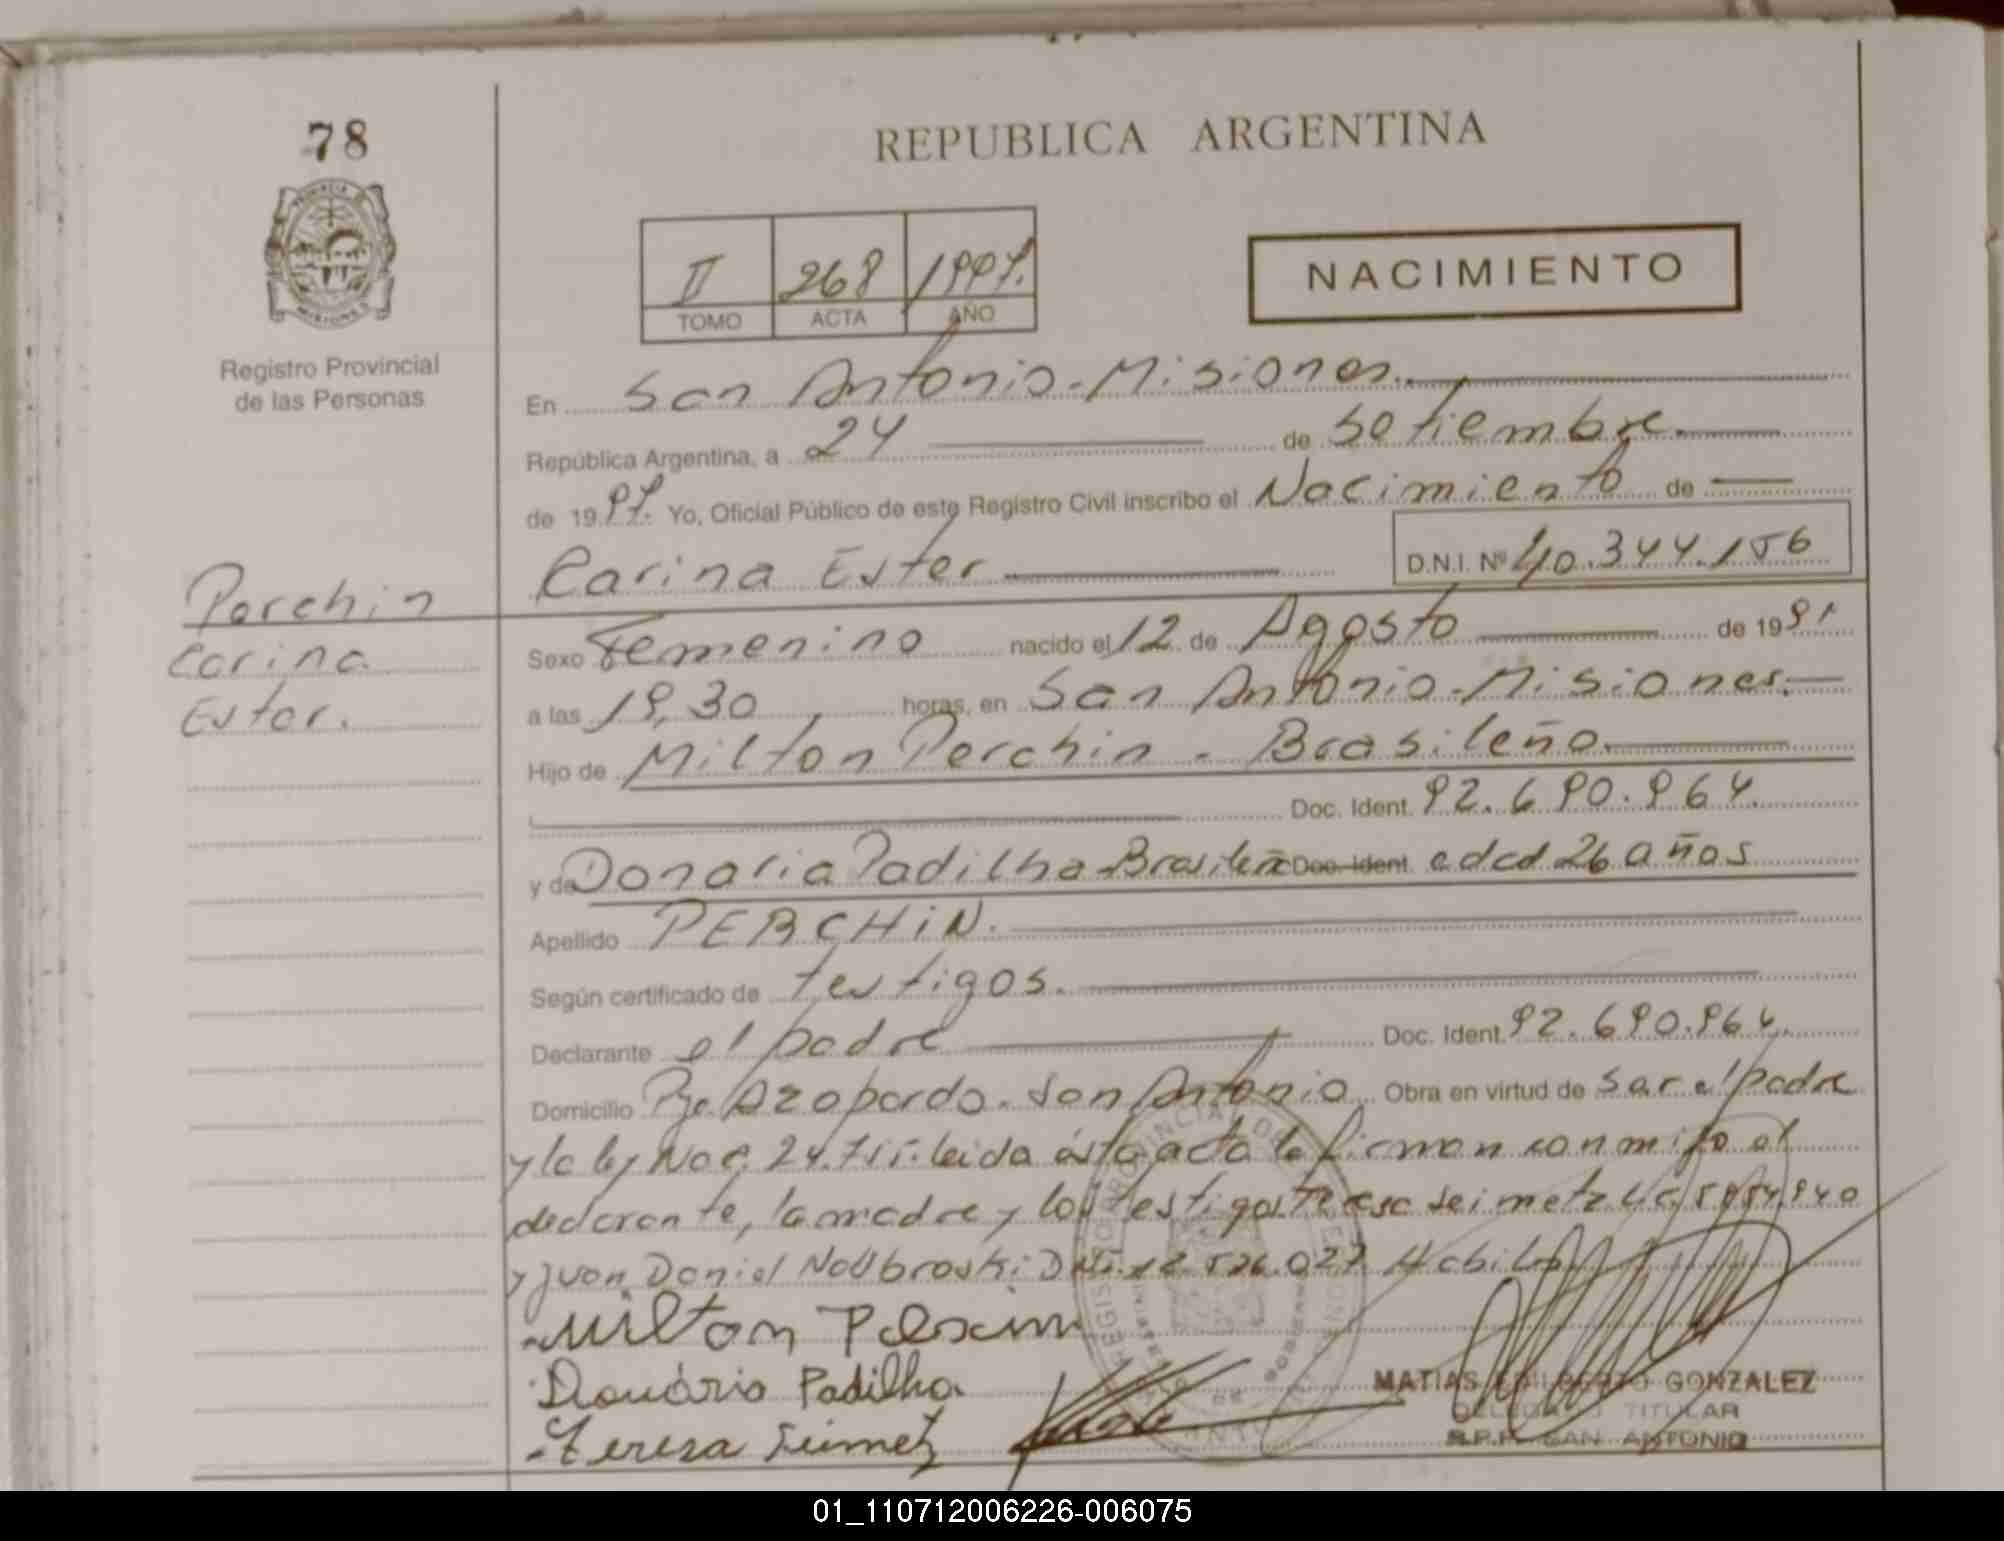 78
REPUBLICA ARGENTINA
II 268 1997.
TOMO ACTA AÑO
NACIMIENTO
Registro Provincial
de las Personas
En San Antonio-Misiones.
República Argentina, a 24 de Setiembre.
de 1997. Yo, Oficial Público de este Registro Civil inscribo el Nacimiento de
Carina Ester D.N.I. Nº 40.344.156
Perchin
Carina
Ester.
Sexo Femenino nacido el 12 de Agosto de 1991
a las 19,30 horas, en San Antonio-Misiones.
Hijo de Milton Perchin - Brasileño.
Doc. Ident. 92.690.964
y de Donaria Padilha-Brasileña Doc. Ident. edad 26 años
Apellido PERCHIN.
Según certificado de testigos.
Declarante el padre Doc. Ident. 92.690.964.
Domicilio Pje. Azopardo. San Antonio Obra en virtud de ser el padre
y la ley Nac. 24.755. leida ésta acta la firman conmigo el
declarante, la madre y los testigos Teresa Seimetz
y Juan Daniel
Milton
Donária Padilha
Teresa Seimetz
MATIAS EDILBERTO GONZALEZ
DELEGADO TITULAR
R.P.P. SAN ANTONIO
01_110712006226-006075